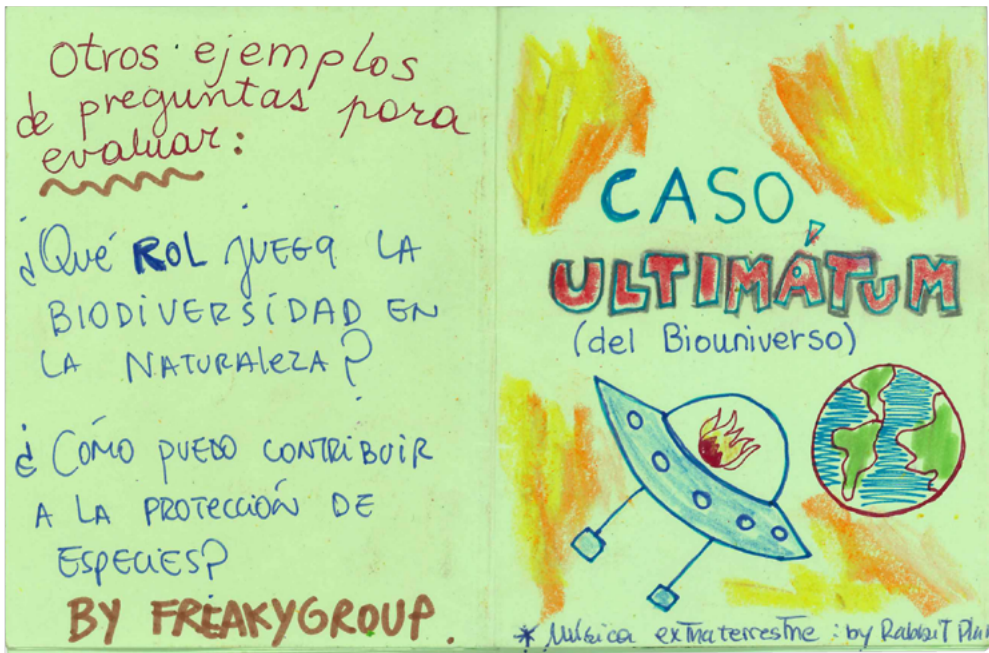 Otros ejemplos
de preguntas para
evaluar:
¿Qué ROL juega LA
BIODIVERSIDAD EN
LA NATURALEZA?
¿CÓMO PUEDO CONTRIBUIR
A LA PROTECCIÓN DE
ESPECIES?
BY FREAKYGROUP.
CASO
ULTIMÁTUM
(del Biouniverso)
* Música extraterrestre: by Rabbit